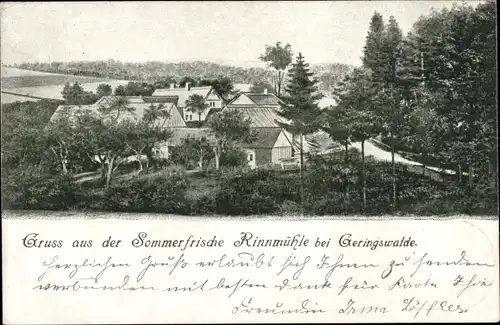 Gruss aus der Sommerfrische Rinnmühle bei Geringswalde.
Herzlichen Gruß erlaubt sich Ihnen zu senden
verbunden mit besten Dank für Karte Ihre
Freundin Irma